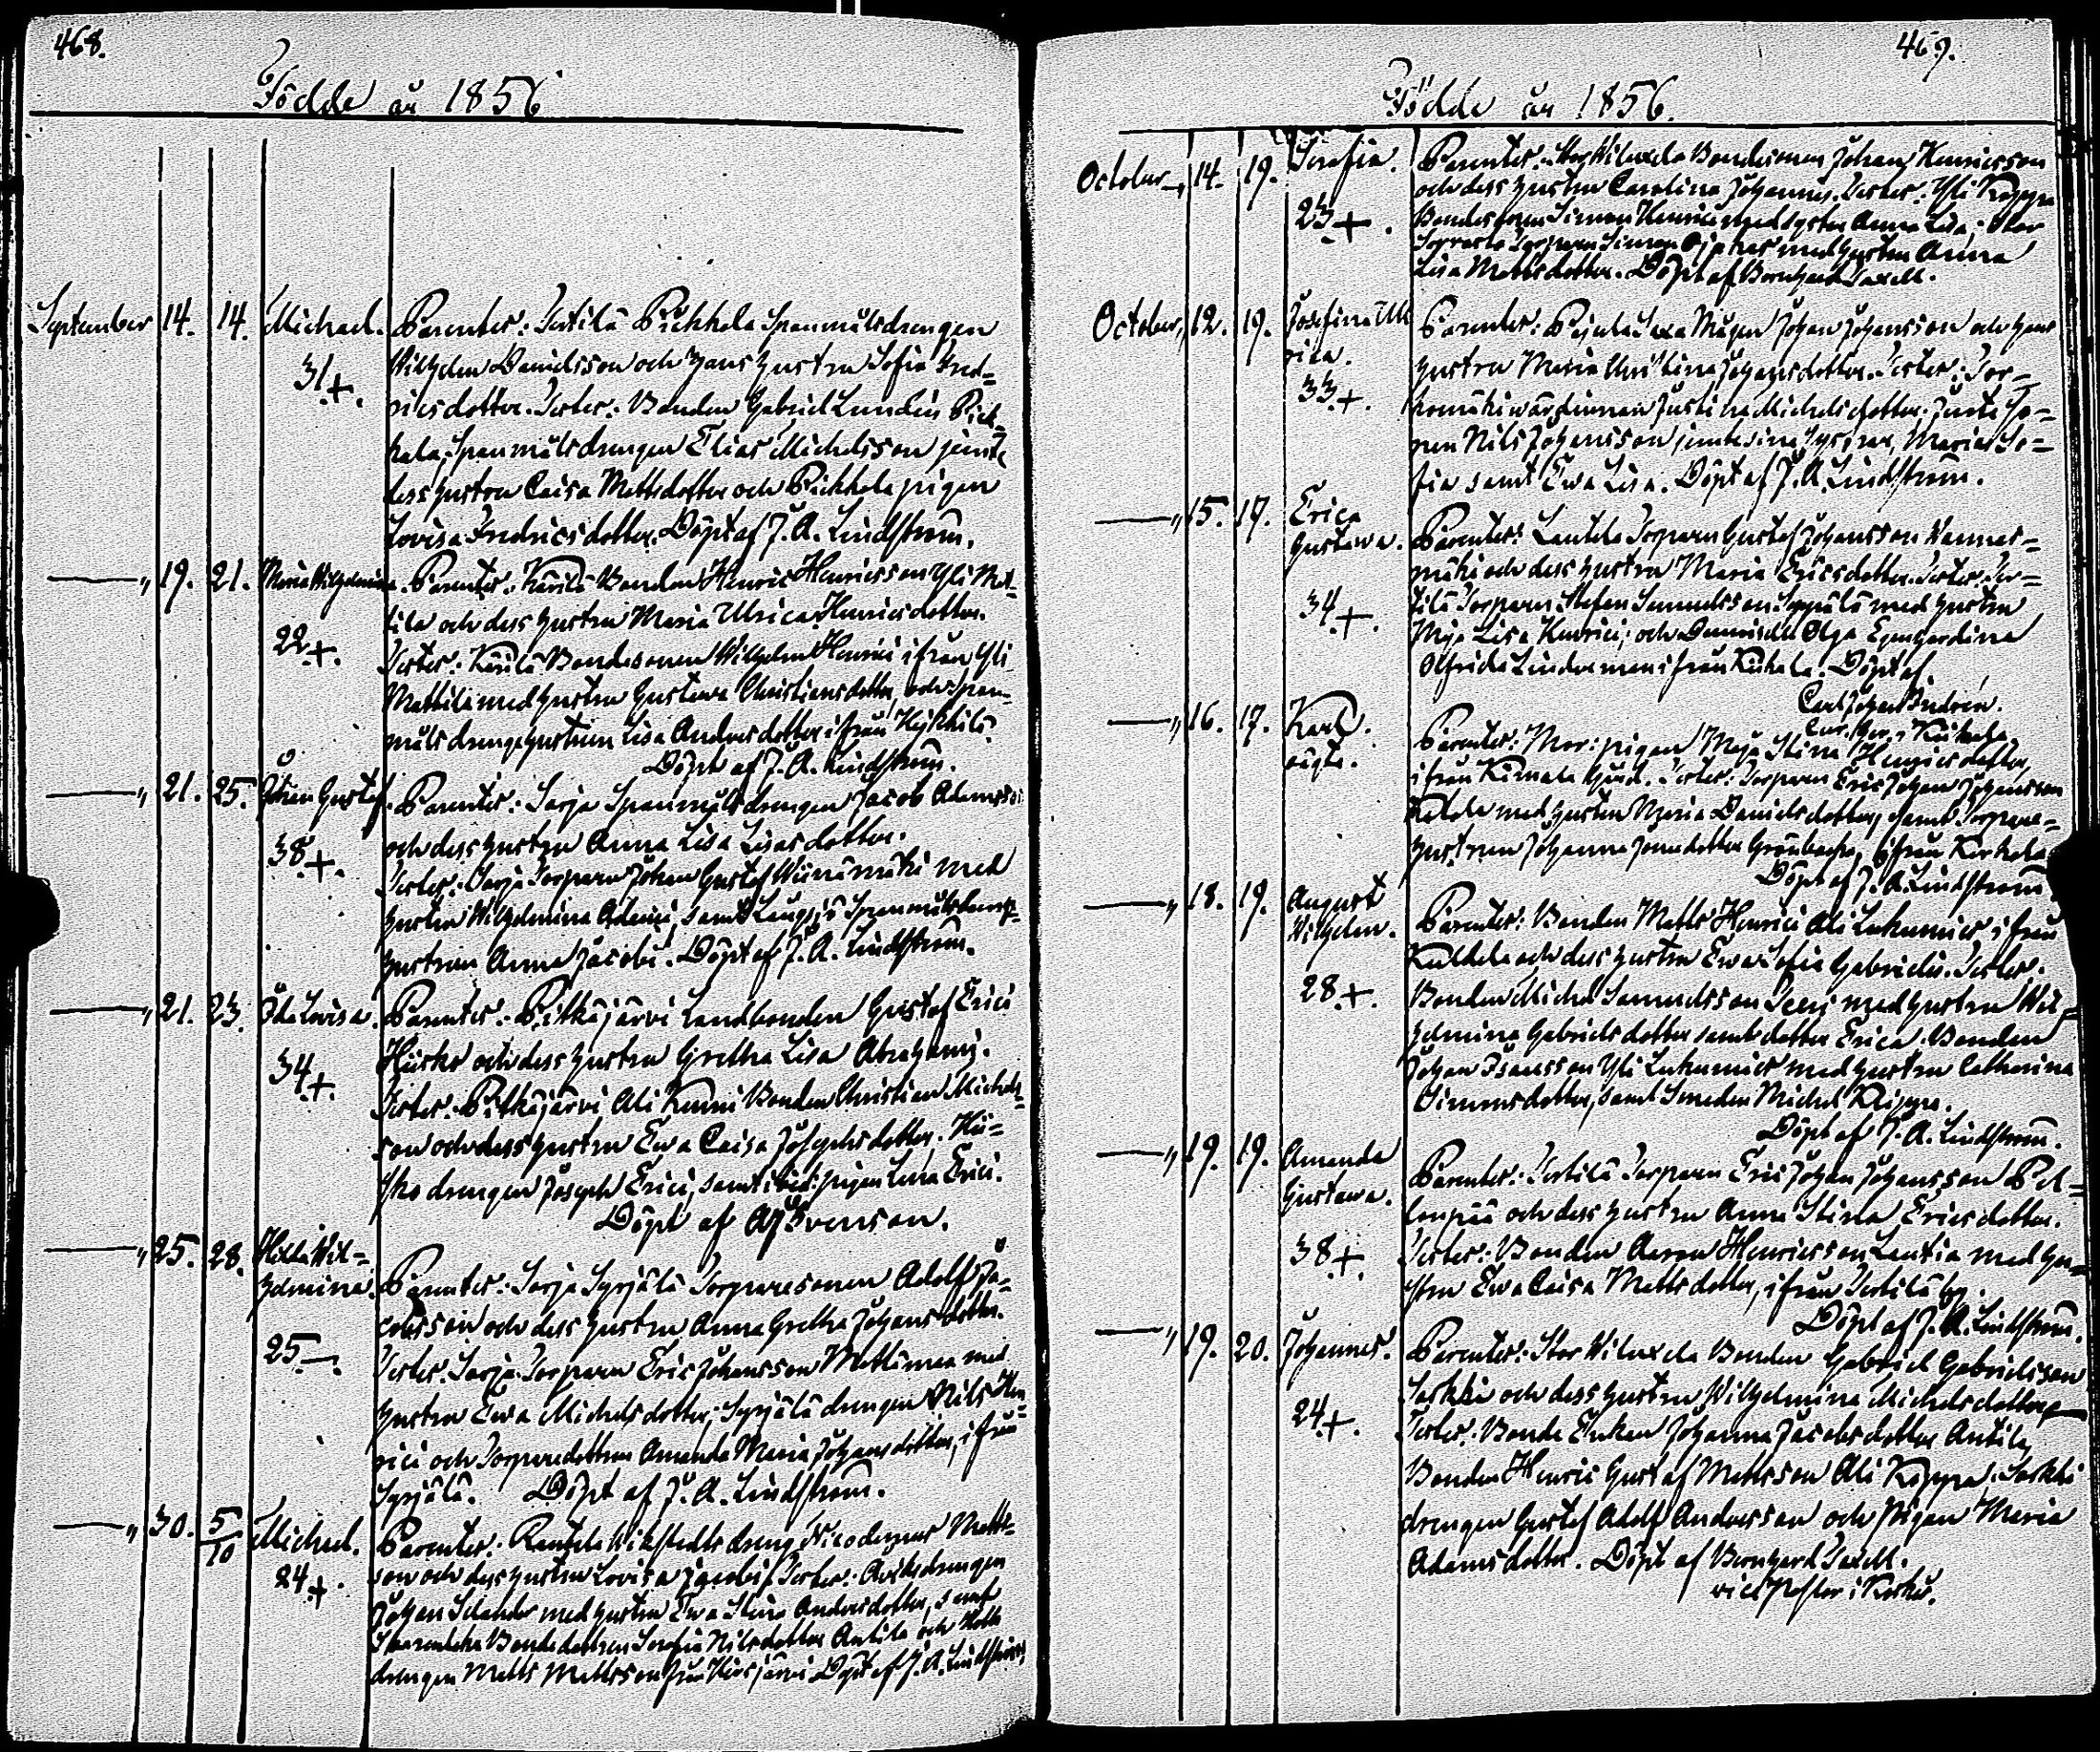 468.
Födde år 1856
September 14. 14. Michael. Parenter: Tertilä Pickhela Spanmålsdrengen
Wilhelm Danielsson och hans hustru Sofia Fred=
31+. ricsdotter. Tester: Bonden Gabriel Lundén Pick=
hala, Spanmålsdrengen Elias Michelsson jemte
dess hustru Caisa Mattsdotter och Pickhela pigan
Lovisa Fredricsdotter. Döpt af J. A. Lindström.
—„ 19. 21. Maria Wilhelmina. Parenter: Kärilä Bonden Henric Henricsson Yli Mat=
tila och dess hustru Maria Ulrica Henricsdotter.
22+. Tester: Kärilä Bondesonen Wilhelm Henrici ifrån Yli
Mattila med hustru Gustava Christiansdotter, och span=
målsdrengehustrun Lisa Andersdotter ifrån Heikkilä.
Döpt af J. A. Lindström.
—„ 21. 25. Johan Gustaf. Parenter: Sarja Spanmålsdrengen Jacob Adamsson
och dess hustru Anna Lisa Lisasdotter.
38+. Tester: Sarja Torparen Johan Gustaf Wiinamäki med
hustru Wilhelmina Adami, samt Spanmålsdreng=
hustrun Anna Jacobi. Döpt af J. A. Lindström.
—„ 21. 23. Ida Lovisa. Parenter: Pitkäjärvi Landbonden Gustaf Erici
Hiisko och dess hustru Gretha Lisa Abrahami.
34+. Tester: Pitkäjärvi Ali Kenni Bonden Christian Michels=
son och dess hustru Ewa Caisa Josephsdotter. Hii=
sko drengen Joseph Erici, samt ibid: pigan Lena Erici.
Döpt af Svenson.
—„ 25. 28. Hilda Wil=
helmina. Parenter: Sarja Syrjälä Torparesonen Adolf Ja=
cobsson och dess hustru Anna Gretha Johansdotter.
25—. Tester: Sarja Torparen Eric Johansson Mattimaa med
hustru Ewa Michelsdotter, Syrjälä drengen Nils Hen=
rici och Torparedottren Amanda Maria Johansdotter, ifrån
Syrjälä. Döpt af J. A. Lindström.
—„ 30. 5/10 Michael. Parenter: Rantela Wikstedts dreng Nicodemus Matts=
son och dess hustru Lovisa Jacobi. Tester: drengen
24+. Johan Selander med hustru Ewa Stina Andersdotter, samt
Bondedottren Serafia Nilsdotter Antila och
drengen Matts Mattsson från Döpt af J. A. Lindström.
469.
Födde år 1856.
October „ 14. 19. Serafia. Parenter: Stor Wiluxela Bondesonen Johan Henricsson
och dess hustru Carolina Johannes. Tester: Yli Käppi
23+. Bondesonen Simon Henrici med syster Anna Lisa; Stor
Torparen Simon med hustru Anna
Lisa Mattsdotter. Döpt af Bernhard Taxell.
October „ 12. 19. Josefina Ul
rica. Parenter: Johan Johansson och hans
hustru Maria Christina Johansdotter. Tester:
33+. Justina Michelsdotter. So=
nen Nils Johansson jemte sina systrar, Maria So=
fia samt Ewa Lisa. Döpt af J. A. Lindström.
—„ 15. 17. Erica
Gustava. Parenter: Lautela Torparen Gustaf Johansson Wannas=
mäki och dess hustru Maria Ericsdotter. Tester: Ter=
34+. tilä Torparen Stefan Samuelsson Seppälä med hustru
Maja Lisa Henrici; och Demoiselle Olga Emgardina
Alfrida Lindeman ifrån Kiikala. Döpt af
Carl Johan Indrén.
Cur: Ger: i Kiikala.
—„ 16. 17. Karl.
oägte. Parenter: Mor: pigan Maja Stina Henricsdotter,
ifrån Kirnala Gård. Tester: Torparen Eric Johan Johansson
Ketala med hustru Maria Danielsdotter, samt Torpare=
hustrun Johanna Jonædotter Grönbacka, ifrån Kerkola.
Döpt af J. A. Lindström
—„ 18. 19. August
Wilhelm. Parenter: Bonden Matts Henrici Ali Lukumies ifrån
Kultela och dess hustru Ewa Sofia Gabrielis. Tester:
28+. Bonden Michel Samuelsson med hustru Wil=
helmina Gabrielsdotter samt dotter Erica. Bonden
Johan Isacsson Yli Lukumies med hustru Catharina
Simonsdotter, samt Smeden Michel Klippa.
Döpt af J. A. Lindström.
—„ 19. 19. Amanda
Gustava. Parenter: Tertilä Torparen Eric Johan Johansson Pel=
lonpää och dess hustru Anna Stina Ericsdotter.
38+. Tester: Bonden Aaron Henricsson Lautia med hu=
stru Ewa Caisa Mattsdotter, ifrån Tertilä by.
Döpt af J. A. Lindström.
—„ 19. 20. Johannes. Parenter: Stor Wiluxela Bonden Gabriel Gabrielsson
Sarkki och dess hustru Wilhelmina Michelsdotter.
24+. Tester: Bonde Enkan Johanna Jacobsdotter Antila,
Bonden Henric Gustaf Mattsson Ali Käppä. Sarkki
drengen Gustaf Adolf Andersson och Pigan Maria
Adamsdotter. Döpt af Bernhard Taxell.
vice Pastor i Koskis.